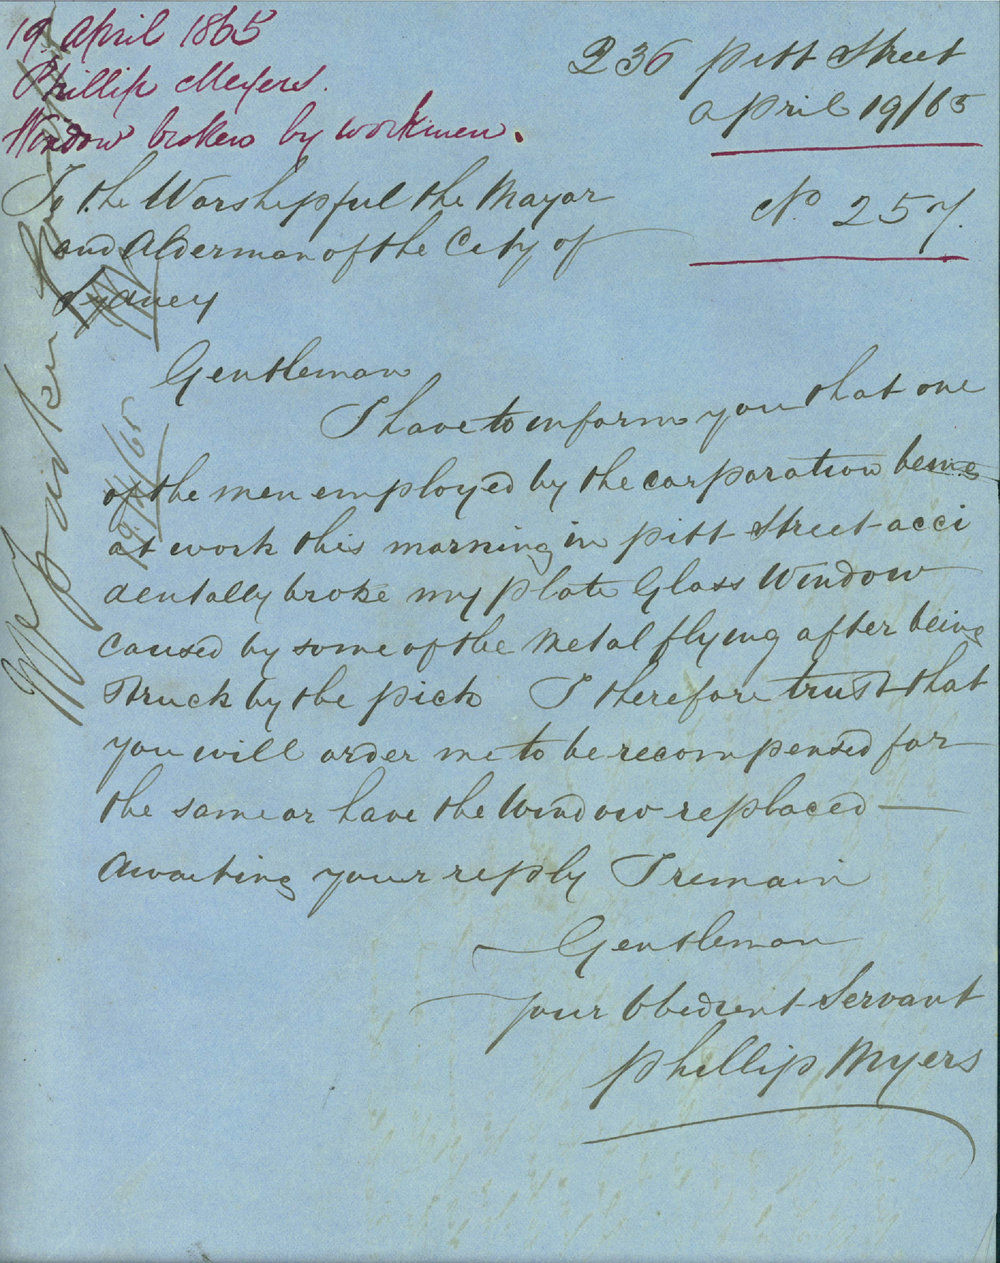 19 April 1865
Phillip Meyers.
Window broken by workmen.
236 Pitt Street
April 19/65
No 257.
To the Worshipful the Mayor
and Alderman of the City of
Sydney
Gentleman
I have to inform you that one
of the men employed by the corporation being
at work this morning in pitt Street acci
dentally broke my plate Glass Window
caused by some of the Metal flying after being
Struck by the pick I therefore trust that
you will order me to be recompensed for
the same or have the Window replaced —
Awaiting your reply I remain
Gentleman
Your Obedient Servant
Phillip Myers
19/4/65